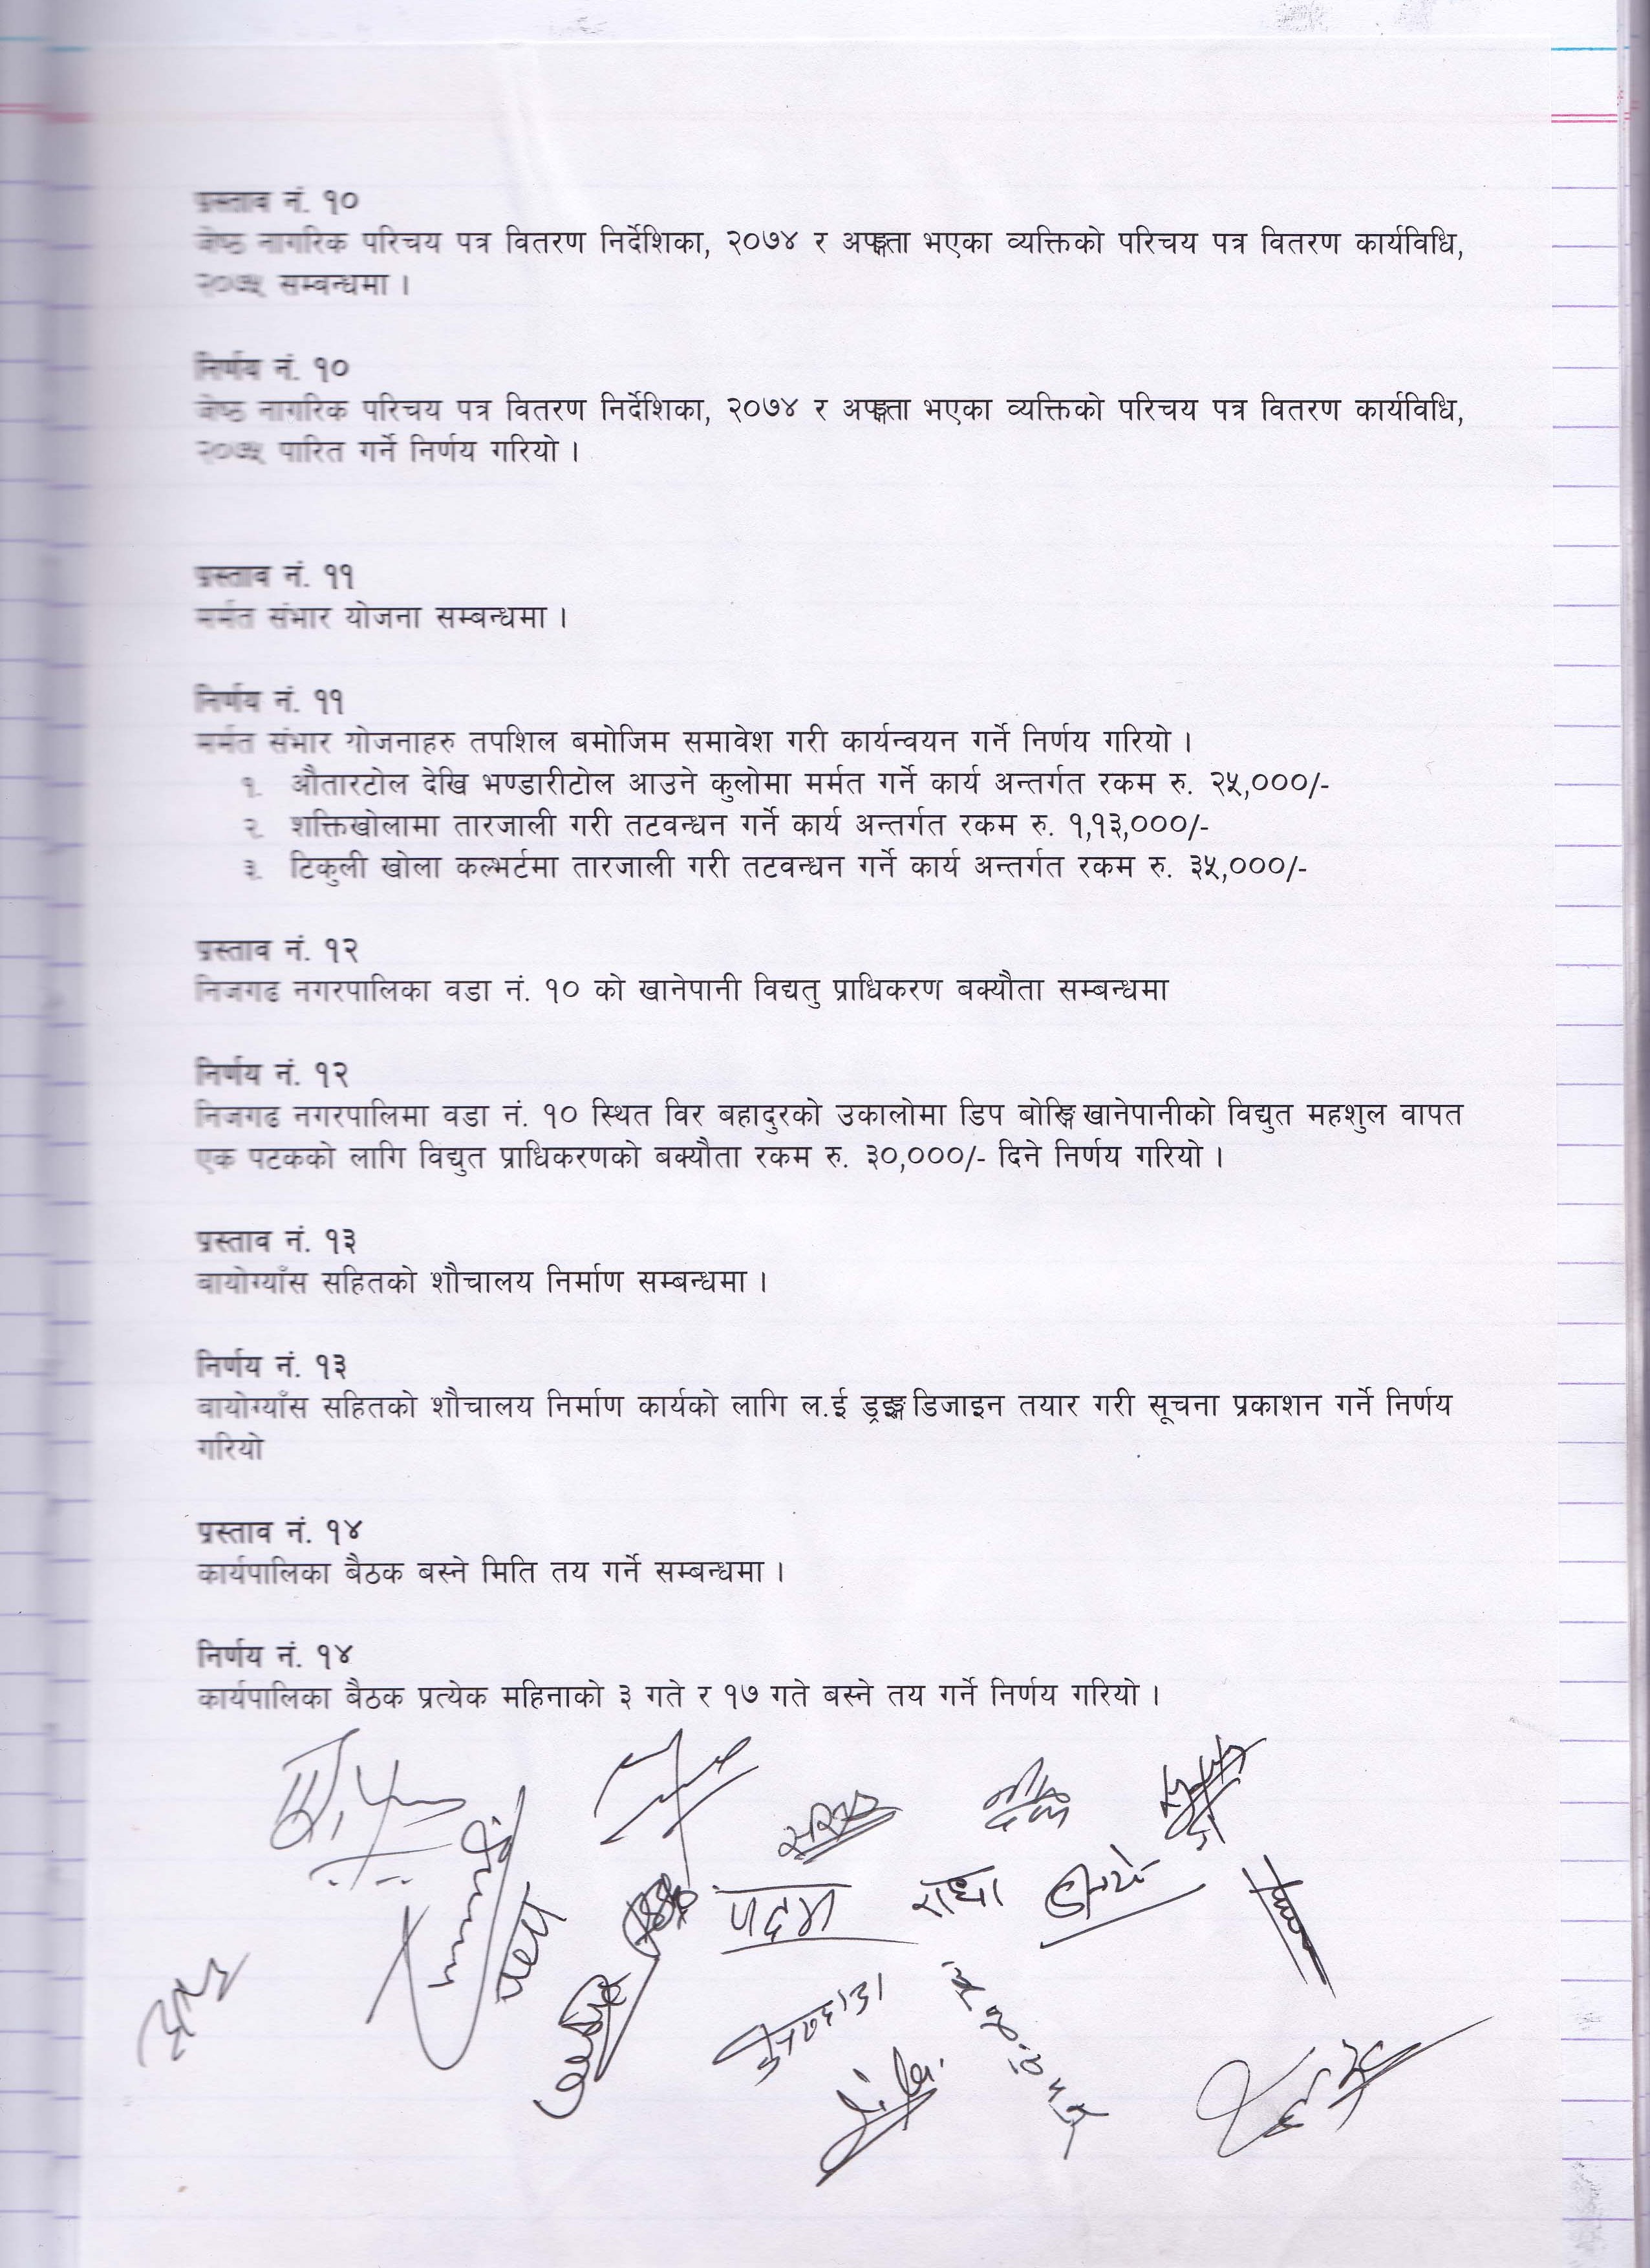 प्रस्ताव नं. १०
जेष्ठ नागरिक परिचय पत्र वितरण निर्देशिका, २०७४ र अपङ्गता भएका व्यक्तिको परिचय पत्र वितरण कार्यविधि,
२०७५ सम्वन्धमा ।
निर्णय नं. १०
जेष्ठ नागरिक परिचय पत्र वितरण निर्देशिका, २०७४ र अपङ्गता भएका व्यक्तिको परिचय पत्र वितरण कार्यविधि,
२०७५ पारित गर्ने निर्णय गरियो ।
प्रस्ताव नं. ११
मर्मत संभार योजना सम्बन्धमा ।
निर्णय नं. ११
मर्मत संभार योजनाहरु तपशिल बमोजिम समावेश गरी कार्यन्वयन गर्ने निर्णय गरियो ।
१. औतारटोल देखि भण्डारीटोल आउने कुलोमा मर्मत गर्ने कार्य अन्तर्गत रकम रु. २५,०००/-
२. शक्तिखोलामा तारजाली गरी तटवन्धन गर्ने कार्य अन्तर्गत रकम रु. १,१३,०००/-
३. टिकुली खोला कल्भर्टमा तारजाली गरी तटवन्धन गर्ने कार्य अन्तर्गत रकम रु. ३५,०००/-
प्रस्ताव नं. १२
निजगढ नगरपालिका वडा नं. १० को खानेपानी विद्यतु प्राधिकरण बक्यौता सम्बन्धमा
निर्णय नं. १२
निजगढ नगरपालिमा वडा नं. १० स्थित विर बहादुरको उकालोमा डिप बोरिङ्ग खानेपानीको विद्युत महशुल वापत
एक पटकको लागि विद्युत प्राधिकरणको बक्यौता रकम रु. ३०,०००/- दिने निर्णय गरियो ।
प्रस्ताव नं. १३
बायोग्याँस सहितको शौचालय निर्माण सम्बन्धमा ।
निर्णय नं. १३
बायोग्याँस सहितको शौचालय निर्माण कार्यको लागि ल.ई ड्रइङ्ग डिजाइन तयार गरी सूचना प्रकाशन गर्ने निर्णय
गरियो
प्रस्ताव नं. १४
कार्यपालिका बैठक बस्ने मिति तय गर्ने सम्बन्धमा ।
निर्णय नं. १४
कार्यपालिका बैठक प्रत्येक महिनाको ३ गते र १७ गते बस्ने तय गर्ने निर्णय गरियो ।
पदम राधा